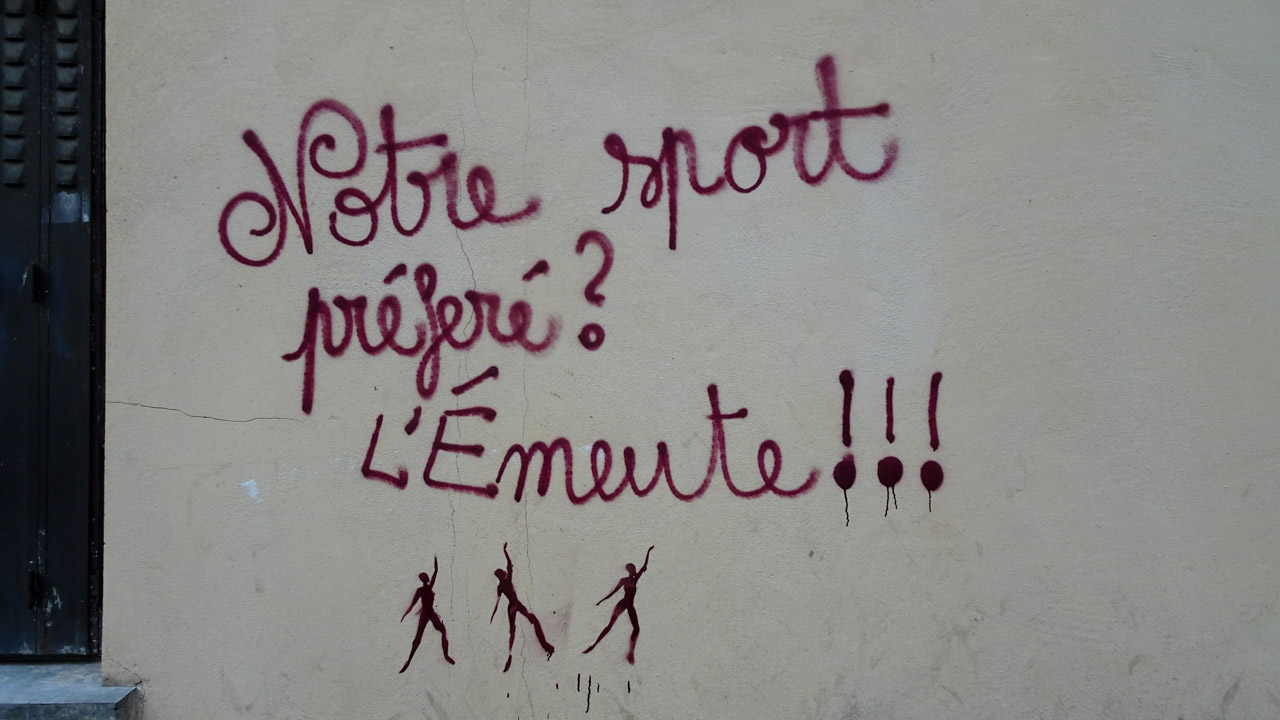 Notre sport
préferé?
L'Émeute!!!